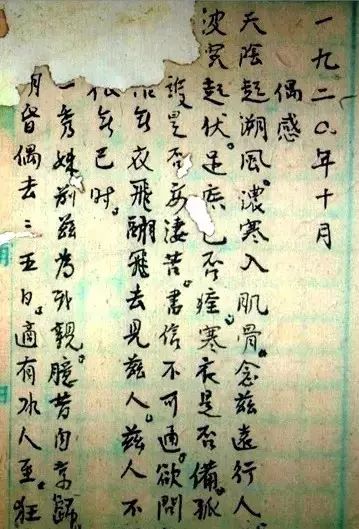 一九二〇年十月
偶感
天陰起溯風。濃寒入肌骨。念茲遠行人
波突起伏。足疾已否痊。寒衣是否備。孤
護是否亦淒苦。書信不可通。欲問
無飛翮飛去見茲人。茲人不
無已时。
一秀妹前茲為我親。臆昔京歸
月偶去三五日。適有冰人至。狂